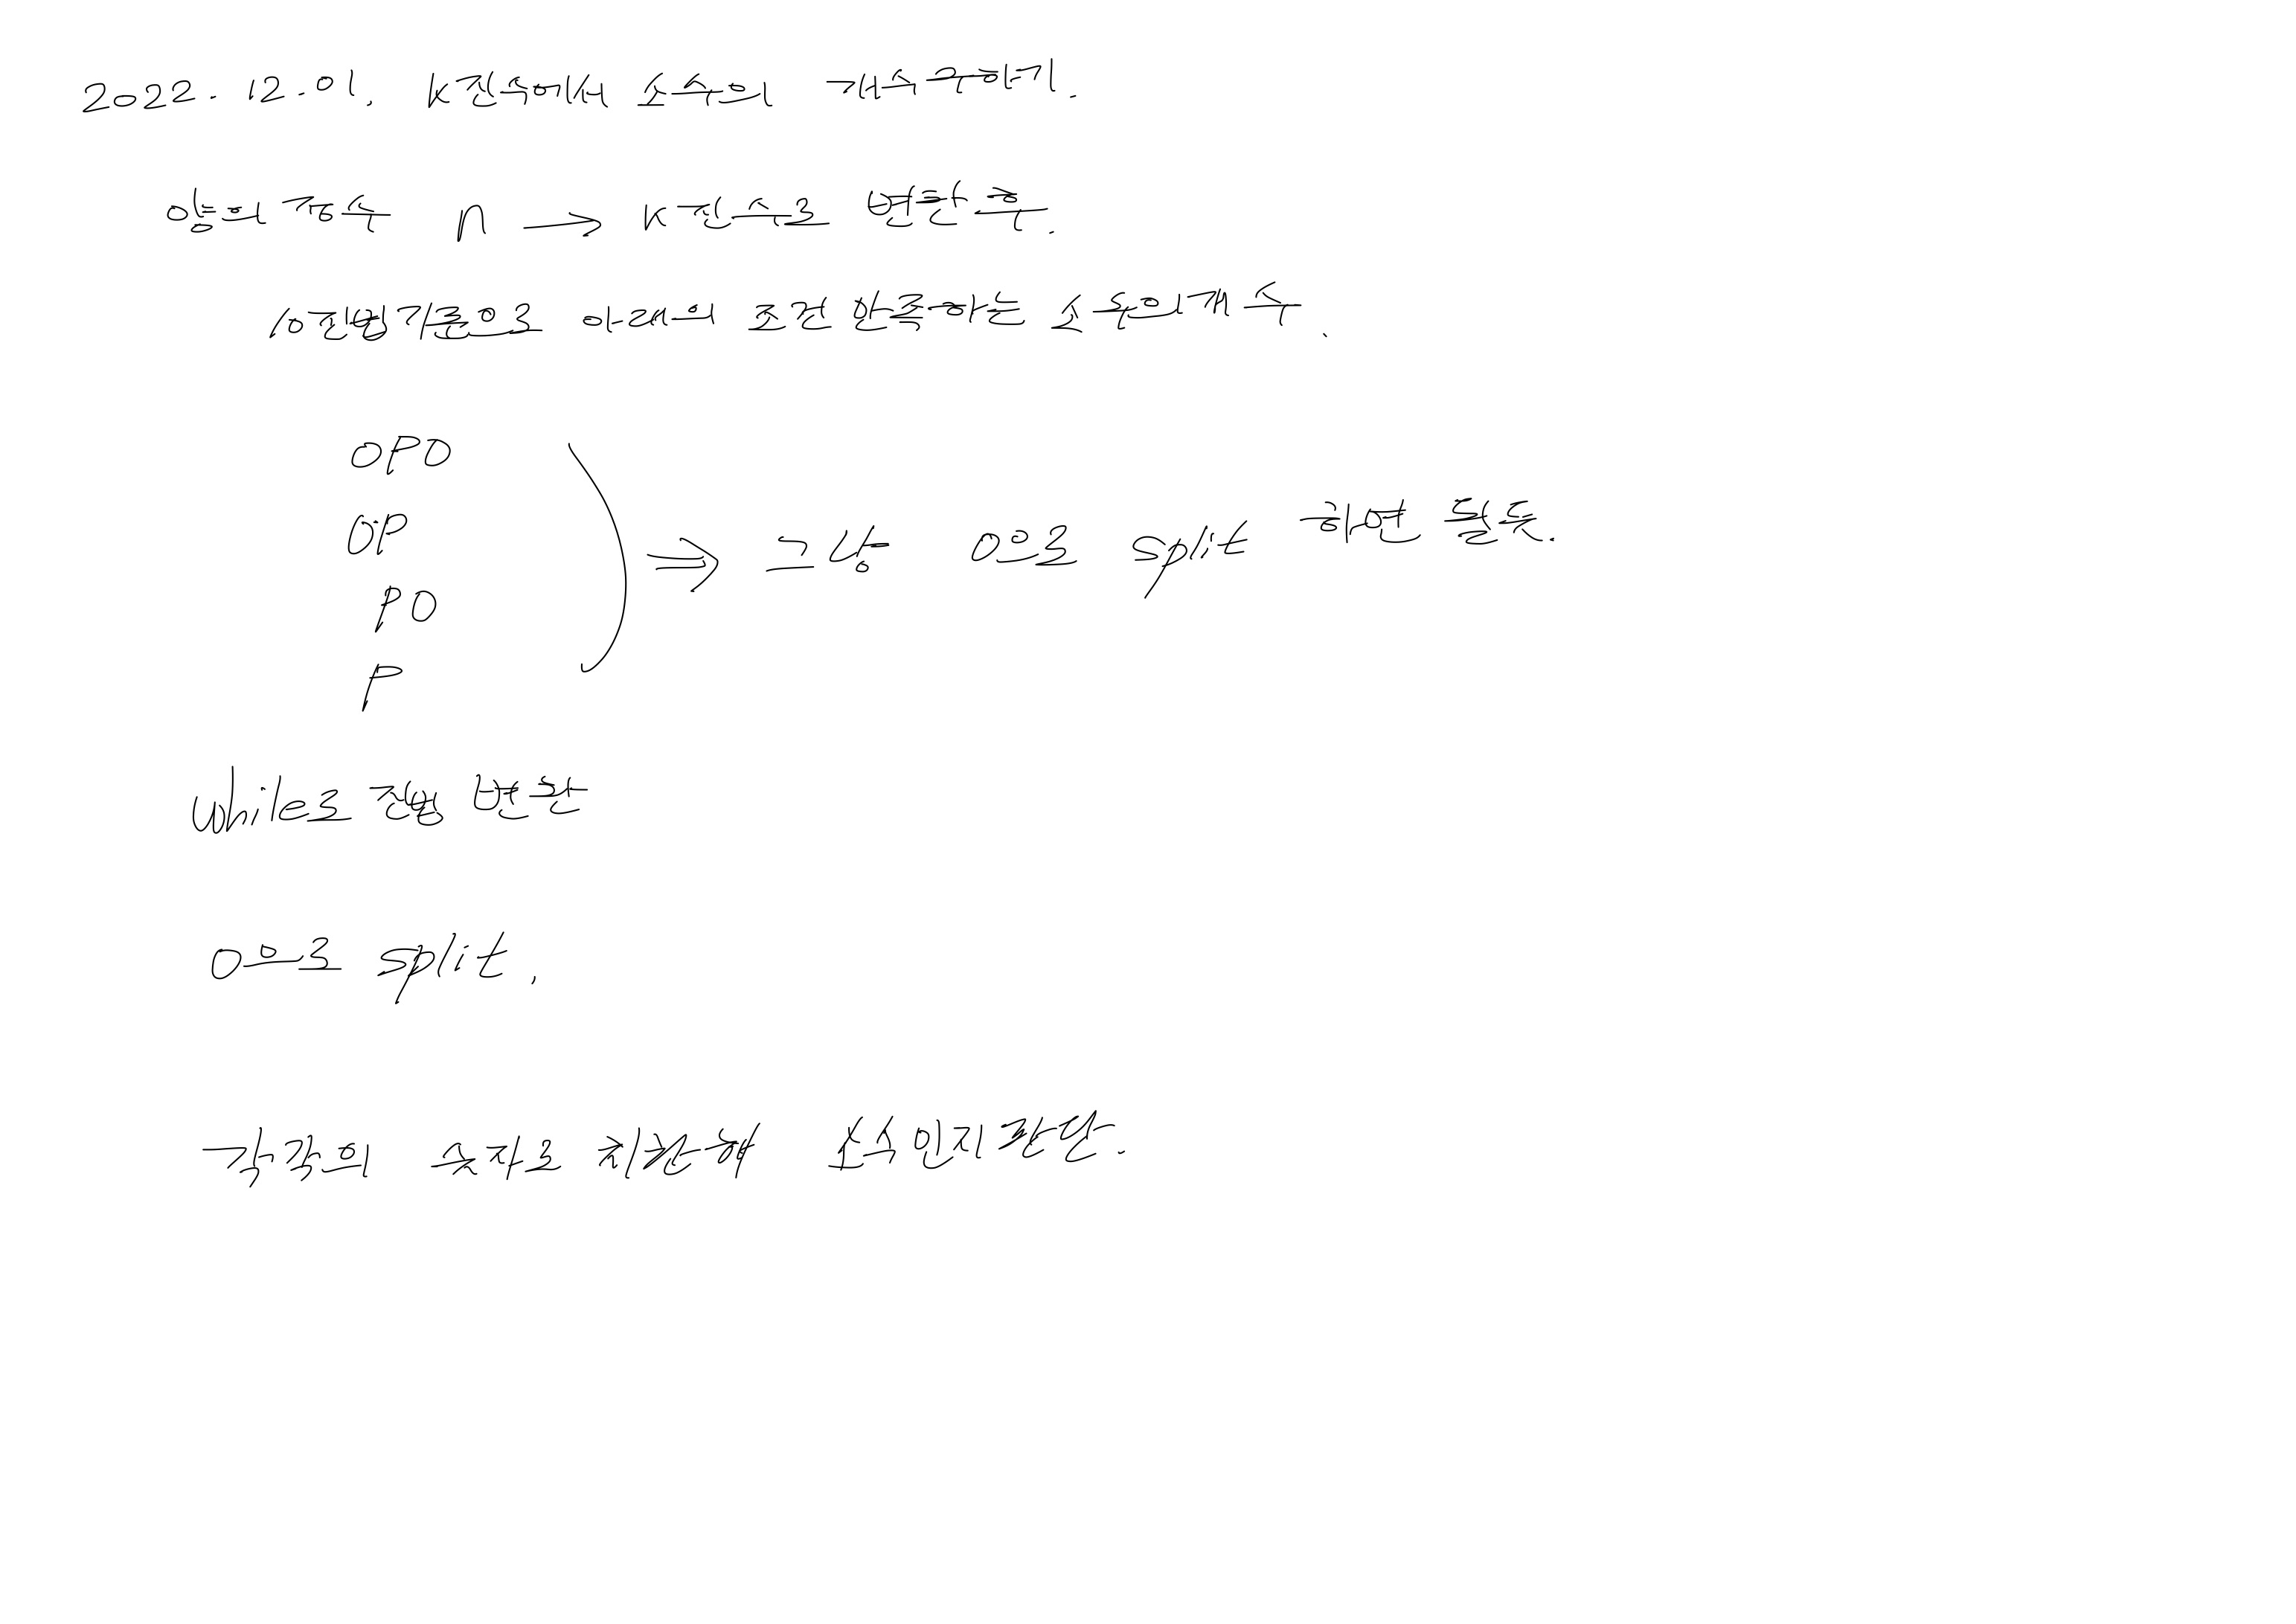 2022. 12. 01. K진수에서 소수의 개수 구하기.
양의 정수 n → K진수로 변환 후.
10진법 기준으로 아래의 조건 만족하는 소수의 개수.
0P0
0P
P0
P
⇒ 그냥 0으로 split 하면 될듯.
while로 진법 변환
0으로 split.
각각의 숫자로 치환해 소수인지 판단.